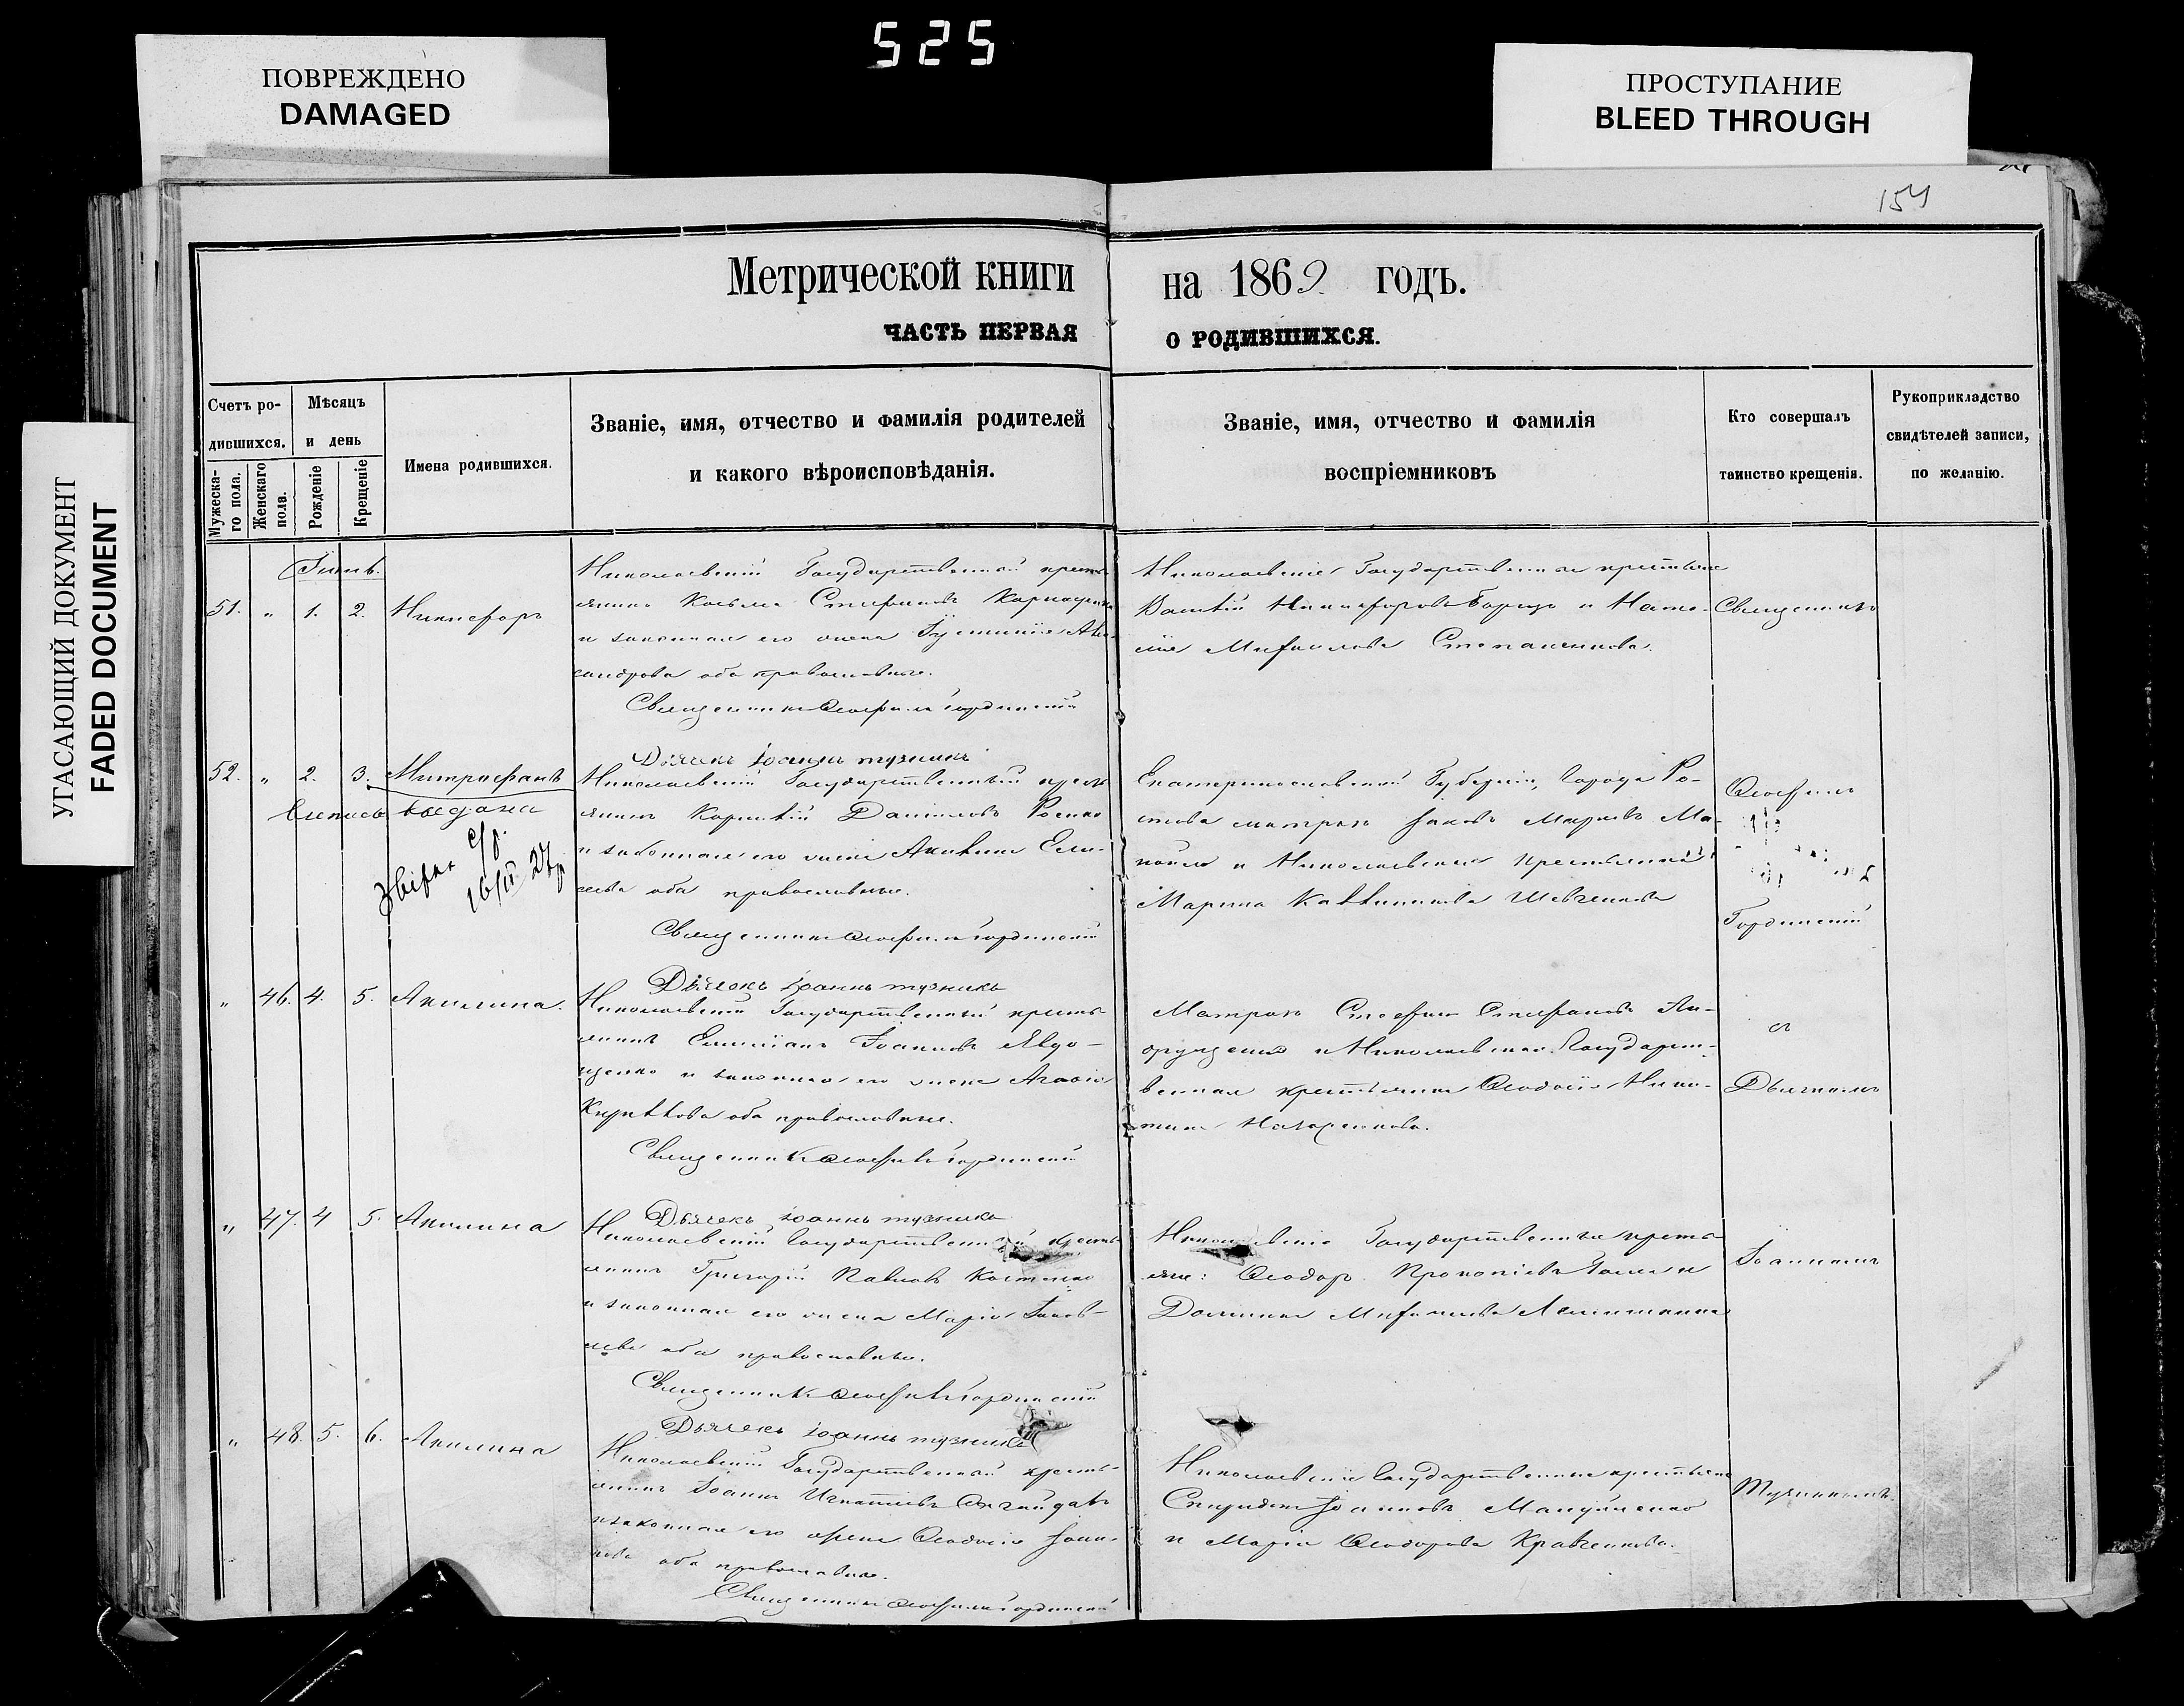 525
ПОВРЕЖДЕНО
DAMAGED
ПРОСТУПАНИЕ
BLEED THROUGH
УГАСАЮЩИЙ ДОКУМЕНТ
FADED DOCUMENT
154
Метрической книги на 1869 годъ.
ЧАСТЬ ПЕРВАЯ О РОДИВШИХСЯ.
Счетъ ро-
дившихся.
Мѣсяцъ
и день
Мужеска-
го пола.
Женскаго
пола.
Рожденіе
Крещеніе
Имена родившихся.
Званіе, имя, отчество и фамилія родителей
и какого вѣроисповѣданія.
Званіе, имя, отчество и фамилія
воспріемниковъ
Кто совершалъ
таинство крещенія.
Рукоприкладство
свидѣтелей записи,
по желанію.
51. " 1. 2. Никифоръ
Николаевскій Государственный кресть
янинъ Косьма Стефановъ
и законная его жена Іустинія Алек
сандрова оба православные.
Священникъ Гординскій
Николаевскіе Государственные крестьяне
Никифоровъ и Ната-
лія Михайлова Степаненкова.
Священникъ
Дьячекъ Іоаннъ
52. " 2. 3. Митрофанъ
выдана
Николаевскій Государственный кресть
янинъ Данииловъ
и законная его жена Акилина Ели-
сеева оба православные.
Священникъ Гординскій
Екатеринославской Губерніи, Города Ро-
стова матросъ Яковъ Марковъ Ма-
и Николаевская крестьянка
Марина Шевченкова
Гординскій
Дьячокъ Іоаннъ
" 46. 4. 5. Акилина.
Николаевскій Государственный кресть
янинъ Емиліанъ Іоанновъ Явдо-
щенко и законная его жена Агафія
Кириллова оба православные.
Священникъ Гординскій
Матросъ Стефанъ Стефановъ Ан-
друщенко и Николаевская Государст-
венная крестьянка Ѳеодосія Ники-
тина Назаренкова.
съ
Дьячкомъ
Дьячекъ Іоаннъ
" 47. 4 5. Акилина
Николаевскій Государственный кресть
янинъ Григорій Павловъ Костенко
и законная его жена Марія Яков-
лева оба православные.
Священникъ Гординскій
Николаевскіе Государственные кресть
яне: Ѳеодоръ Прокопіевъ
Домника Михайлова
Іоанномъ
Дьячекъ Іоаннъ
" 48. 5. 6. Акилина
Николаевскій Государственный кресть-
янинъ Іоаннъ Игнатіевъ
и законная его жена Ѳеодосія Іоан-
нова оба православные.
Священникъ Гординскій
Николаевскіе Государственные крестьяне
Спиридонъ Іоанновъ Мануйленко
и Марія Ѳеодорова Кравченкова.